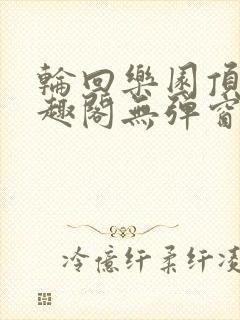 輪回樂園頂
趣閣無彈窗
冷億纤柔纤凌